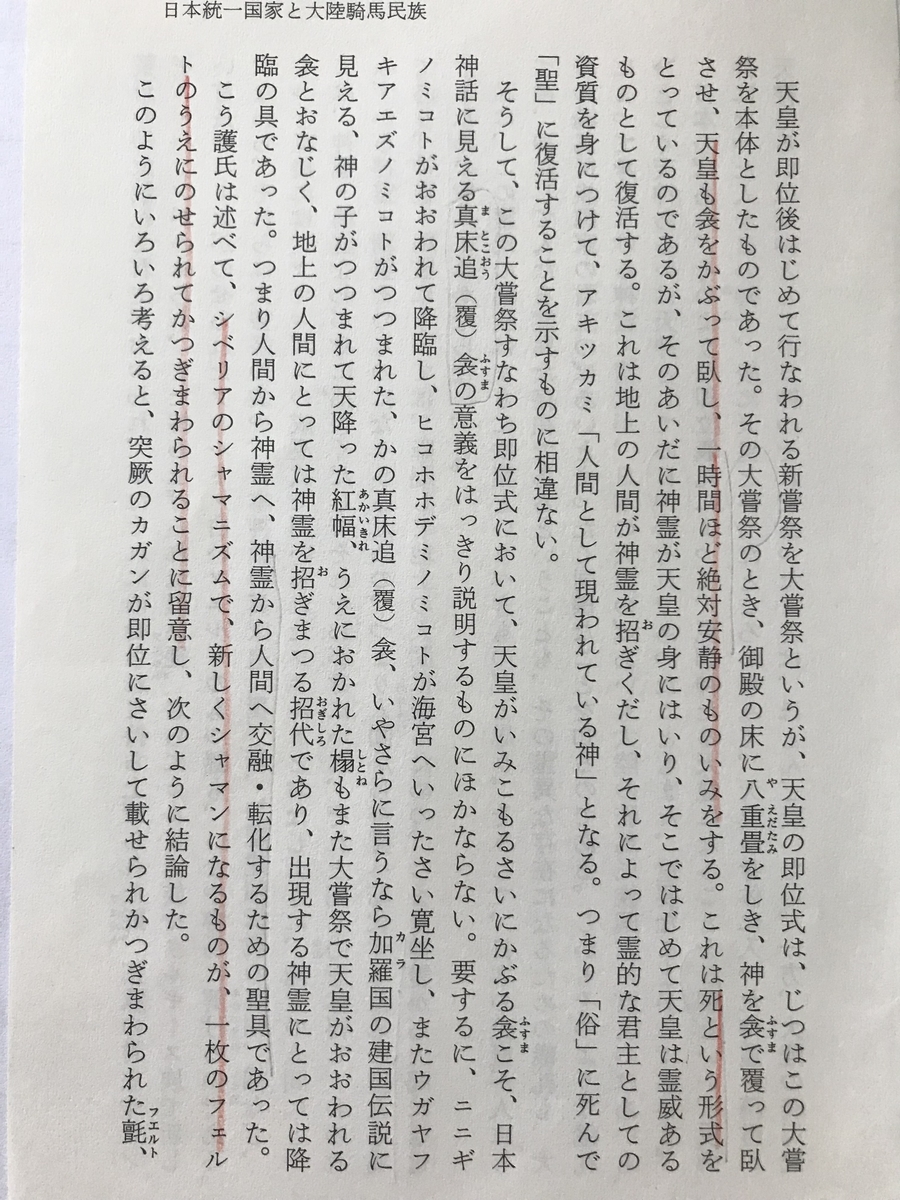 日本統一国家と大陸騎馬民族
天皇が即位後はじめて行なわれる新嘗祭を大嘗祭というが、天皇の即位式は、じつはこの大嘗
祭を本体としたものであった。その大嘗祭のとき、御殿の床に八重畳をしき、神を衾で覆って臥
させ、天皇も衾をかぶって臥し、一時間ほど絶対安静のものいみをする。これは死という形式を
とっているのであるが、そのあいだに神霊が天皇の身にはいり、そこではじめて天皇は霊威ある
ものとして復活する。これは地上の人間が神霊を招ぎくだし、それによって霊的な君主としての
資質を身につけて、アキツカミ「人間として現われている神」となる。つまり「俗」に死んで
「聖」に復活することを示すものに相違ない。
そうして、この大嘗祭すなわち即位式において、天皇がいみこもるさいにかぶる衾こそ、日本
神話に見える真床追（覆）衾の意義をはっきり説明するものにほかならない。要するに、ニニギ
ノミコトがおおわれて降臨し、ヒコホホデミノミコトが海宮へいったさい寛坐し、またウガヤフ
キアエズノミコトがつつまれた、かの真床追（覆）衾、いやさらに言うなら加羅国の建国伝説に
見える、神の子がつつまれて天降った紅幅、うえにおかれた榻もまた大嘗祭で天皇がおおわれる
衾とおなじく、地上の人間にとっては神霊を招ぎまつる招代であり、出現する神霊にとっては降
臨の具であった。つまり人間から神霊へ、神霊から人間へ交融・転化するための聖具であった。
こう護氏は述べて、シベリアのシャマニズムで、新しくシャマンになるものが、一枚のフェル
トのうえにのせられてかつぎまわられることに留意し、次のように結論した。
このようにいろいろ考えると、突厥のカガンが即位にさいして載せられかつぎまわられた氈、